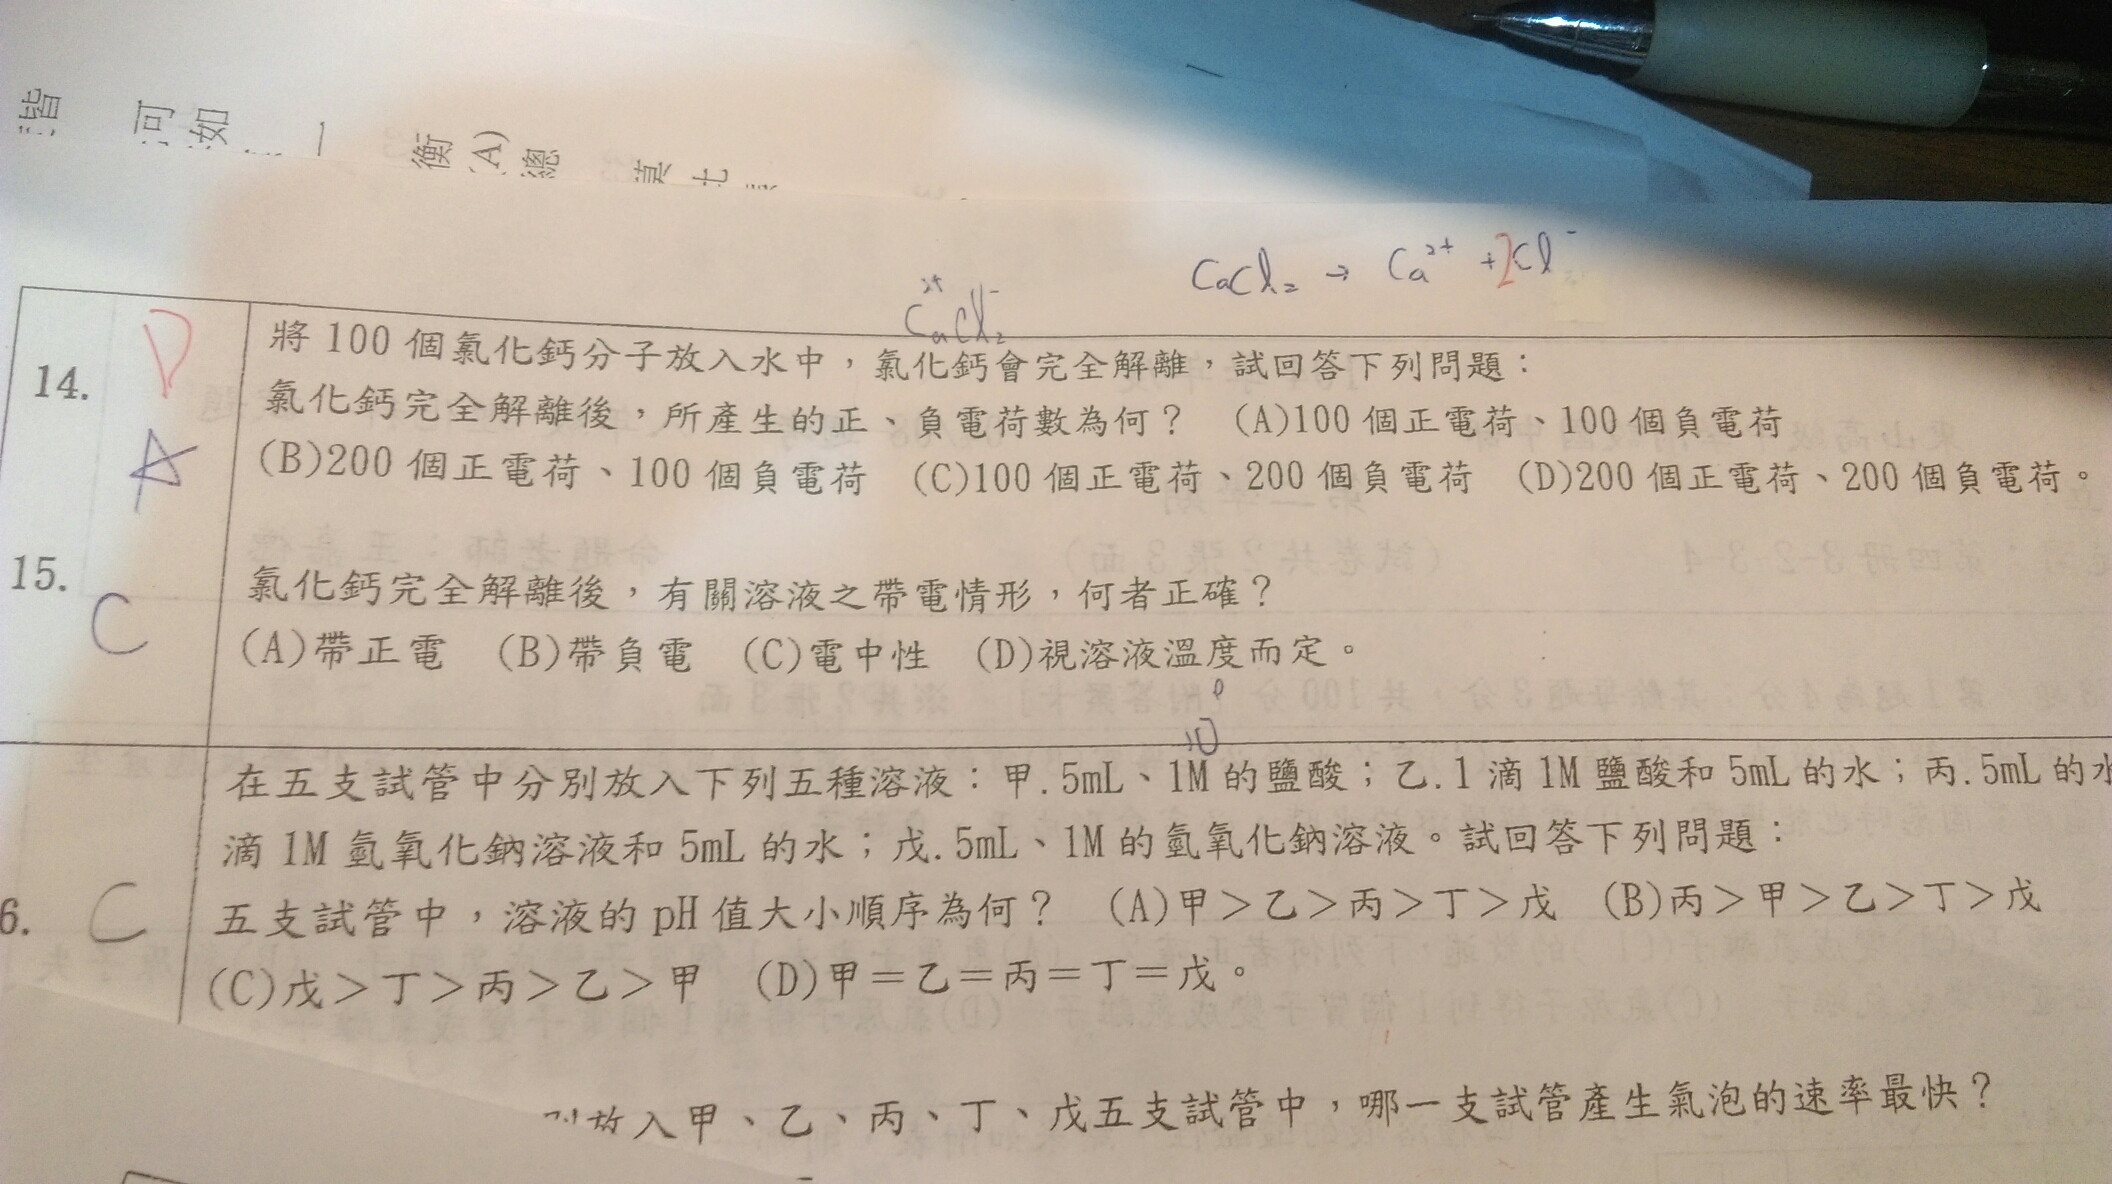 諧
河
如
一
衡
(A)
總
CaCl₂ → Ca²⁺ + 2Cl⁻
Ca²⁺Cl₂⁻
14.
D
A
將 100 個氯化鈣分子放入水中，氯化鈣會完全解離，試回答下列問題：
氯化鈣完全解離後，所產生的正、負電荷數為何？ (A)100 個正電荷、100 個負電荷
(B)200 個正電荷、100 個負電荷 (C)100 個正電荷、200 個負電荷 (D)200 個正電荷、200 個負電荷。
15.
C
氯化鈣完全解離後，有關溶液之帶電情形，何者正確？
(A)帶正電 (B)帶負電 (C)電中性 (D)視溶液溫度而定。
在五支試管中分別放入下列五種溶液：甲.5mL、1M 的鹽酸；乙.1 滴 1M 鹽酸和 5mL 的水；丙.5mL 的水
滴 1M 氫氧化鈉溶液和 5mL 的水；戊.5mL、1M 的氫氧化鈉溶液。試回答下列問題：
6.
C
五支試管中，溶液的 pH 值大小順序為何？ (A)甲＞乙＞丙＞丁＞戊 (B)丙＞甲＞乙＞丁＞戊
(C)戊＞丁＞丙＞乙＞甲 (D)甲＝乙＝丙＝丁＝戊。
放入甲、乙、丙、丁、戊五支試管中，哪一支試管產生氣泡的速率最快？